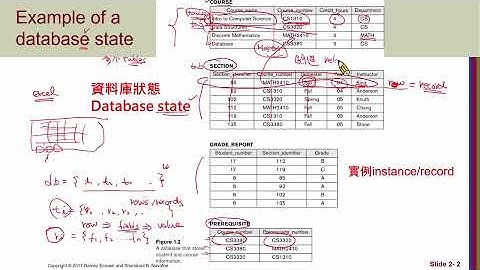 Example of a
database state
excel
資料庫狀態
Database state
COURSE
Course_name Course_number Credit_hours Department
Intro to Computer Science CS1310 4 CS
Data Structures CS3320 4 CS
Discrete Mathematics MATH2410 3 MATH
Database CS3380 3 CS
SECTION
Section_identifier Course_number Semester Year Instructor
85 MATH2410 Fall 04 King
92 CS1310 Fall 04 Anderson
102 CS3320 Spring 05 Knuth
112 MATH2410 Fall 05 Chang
119 CS1310 Fall 05 Anderson
135 CS3380 Fall 05 Stone
row = record
GRADE_REPORT
Student_number Section_identifier Grade
17 112 B
17 119 C
8 85 A
8 92 A
8 102 B
8 135 A
實例instance/record
rows/records
row ⇒ fields ⇒ value
PREREQUISITE
Course_number Prerequisite_number
CS3380 CS3320
CS3380 MATH2410
CS3320 CS1310
Figure 1.2
A database that stores
student and course
information.
Slide 2- 2